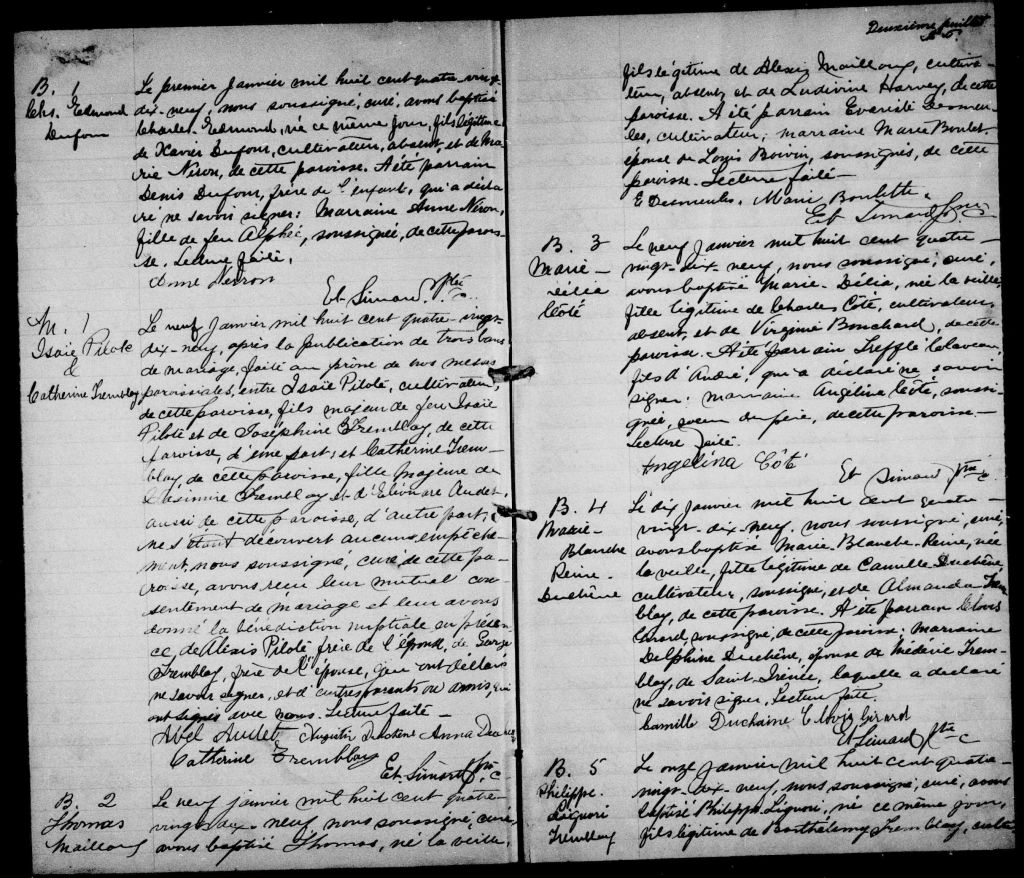 B. 1
Chs. Edmond
Dufour
Le premier Janvier mil huit cent quatre-vingt
dix-neuf, nous soussigné, curé, avons baptisé
Charles-Edmond, né ce même jour, fils légitime
de Xavier Dufour, cultivateur, absent, et de Ma-
rie Néron, de cette paroisse. A été parrain
Denis Dufour, frère de l'enfant, qui a décla-
ré ne savoir signer: Marraine Anne Néron,
fille de feu Alphée, soussignée, de cette parois-
se. Lecture faite.
Anne Néron
Et. Simard Ptre
M. 1
Isaïe Pilote
&
Catherine Tremblay
Le neuf Janvier mil huit cent quatre-vingt-
dix-neuf, après la publication de trois bans
de mariage, faite au prône de nos messes
paroissiales, entre Isaïe Pilote, cultivateur,
de cette paroisse, fils majeur de feu Isaïe
Pilote et de Joséphine Tremblay, de cette
paroisse, d'une part; et Catherine Trem-
blay, de cette paroisse, fille majeure de
Tremblay et d'Eléonore Audet,
aussi de cette paroisse, d'autre part;
ne s'étant découvert aucun empêche-
ment, nous soussigné, curé de cette pa-
roisse, avons reçu leur mutuel con-
sentement de mariage et leur avons
donné la bénédiction nuptiale en présen-
ce, de Alexis Pilote, frère de l'époux, de George
Tremblay, frère de l'épouse, qui ont déclaré
ne savoir signer, et d'autres parents ou amis qui
ont signés avec nous. Lecture faite -
Abel Audet Augustin Duchêne Anna
Catherine Tremblay
Et. Simard Ptre c
B. 2
Thomas
Mailloux
Le neuf janvier mil huit cent quatre-
vingt-dix-neuf, nous soussigné, curé,
avons baptisé Thomas, né la veille,
Deuxième feuillet
fils légitime de Alexis Mailloux, cultiva-
teur, absent, et de Ludivine Harvey, de cette
paroisse. A été parrain Evariste Desmeu-
les, cultivateur; marraine Marie Boulet.
épouse de Louis Boivin, soussignés, de cette
paroisse. Lecture faite -
E Desmeules. Marie Boulette.
Et. Simard Ptre
B. 3
Marie -
Délia
Côté
Le neuf Janvier mil huit cent quatre -
vingt-dix-neuf, nous soussigné, curé,
avons baptisé Marie-Délia, née la veille,
fille légitime de Charles Côté, cultivateur,
absent, et de Virginie Bouchard, de cette
paroisse. A été parrain Trefflé
fils d'André, qui a déclaré ne savoir
signer; marraine Angélina Côté, soussi-
gnée, soeur du père, de cette paroisse. -
Lecture faite.
Angélina Côté
Et Simard Ptre c.
B. 4
Marie
Blanche
Reine -
Duchêne
Le dix Janvier mil huit cent quatre -
vingt-dix-neuf, nous soussigné, curé,
avons baptisé Marie-Blanche-Reine, née
la veille, fille légitime de Camille Duchêne,
cultivateur, soussigné, et de Almanda Trem-
blay, de cette paroisse. A été parrain Clovis
Girard soussigné, de cette paroisse; Marraine
Delphine Duchêne, épouse de Médéric Trem-
blay, de Saint-Irénée, laquelle a déclaré
ne savoir signer, Lecture faite
Camille Duchaine Clovis Girard
Et Simard Ptre c
B. 5
Philippe
Liguori
Tremblay
Le onze Janvier mil huit cent quatre-
vingt-dix-neuf, nous soussigné, curé, avons
baptisé Philippe Liguori, né ce même jour,
fils légitime de Barthélemy Tremblay, culti-